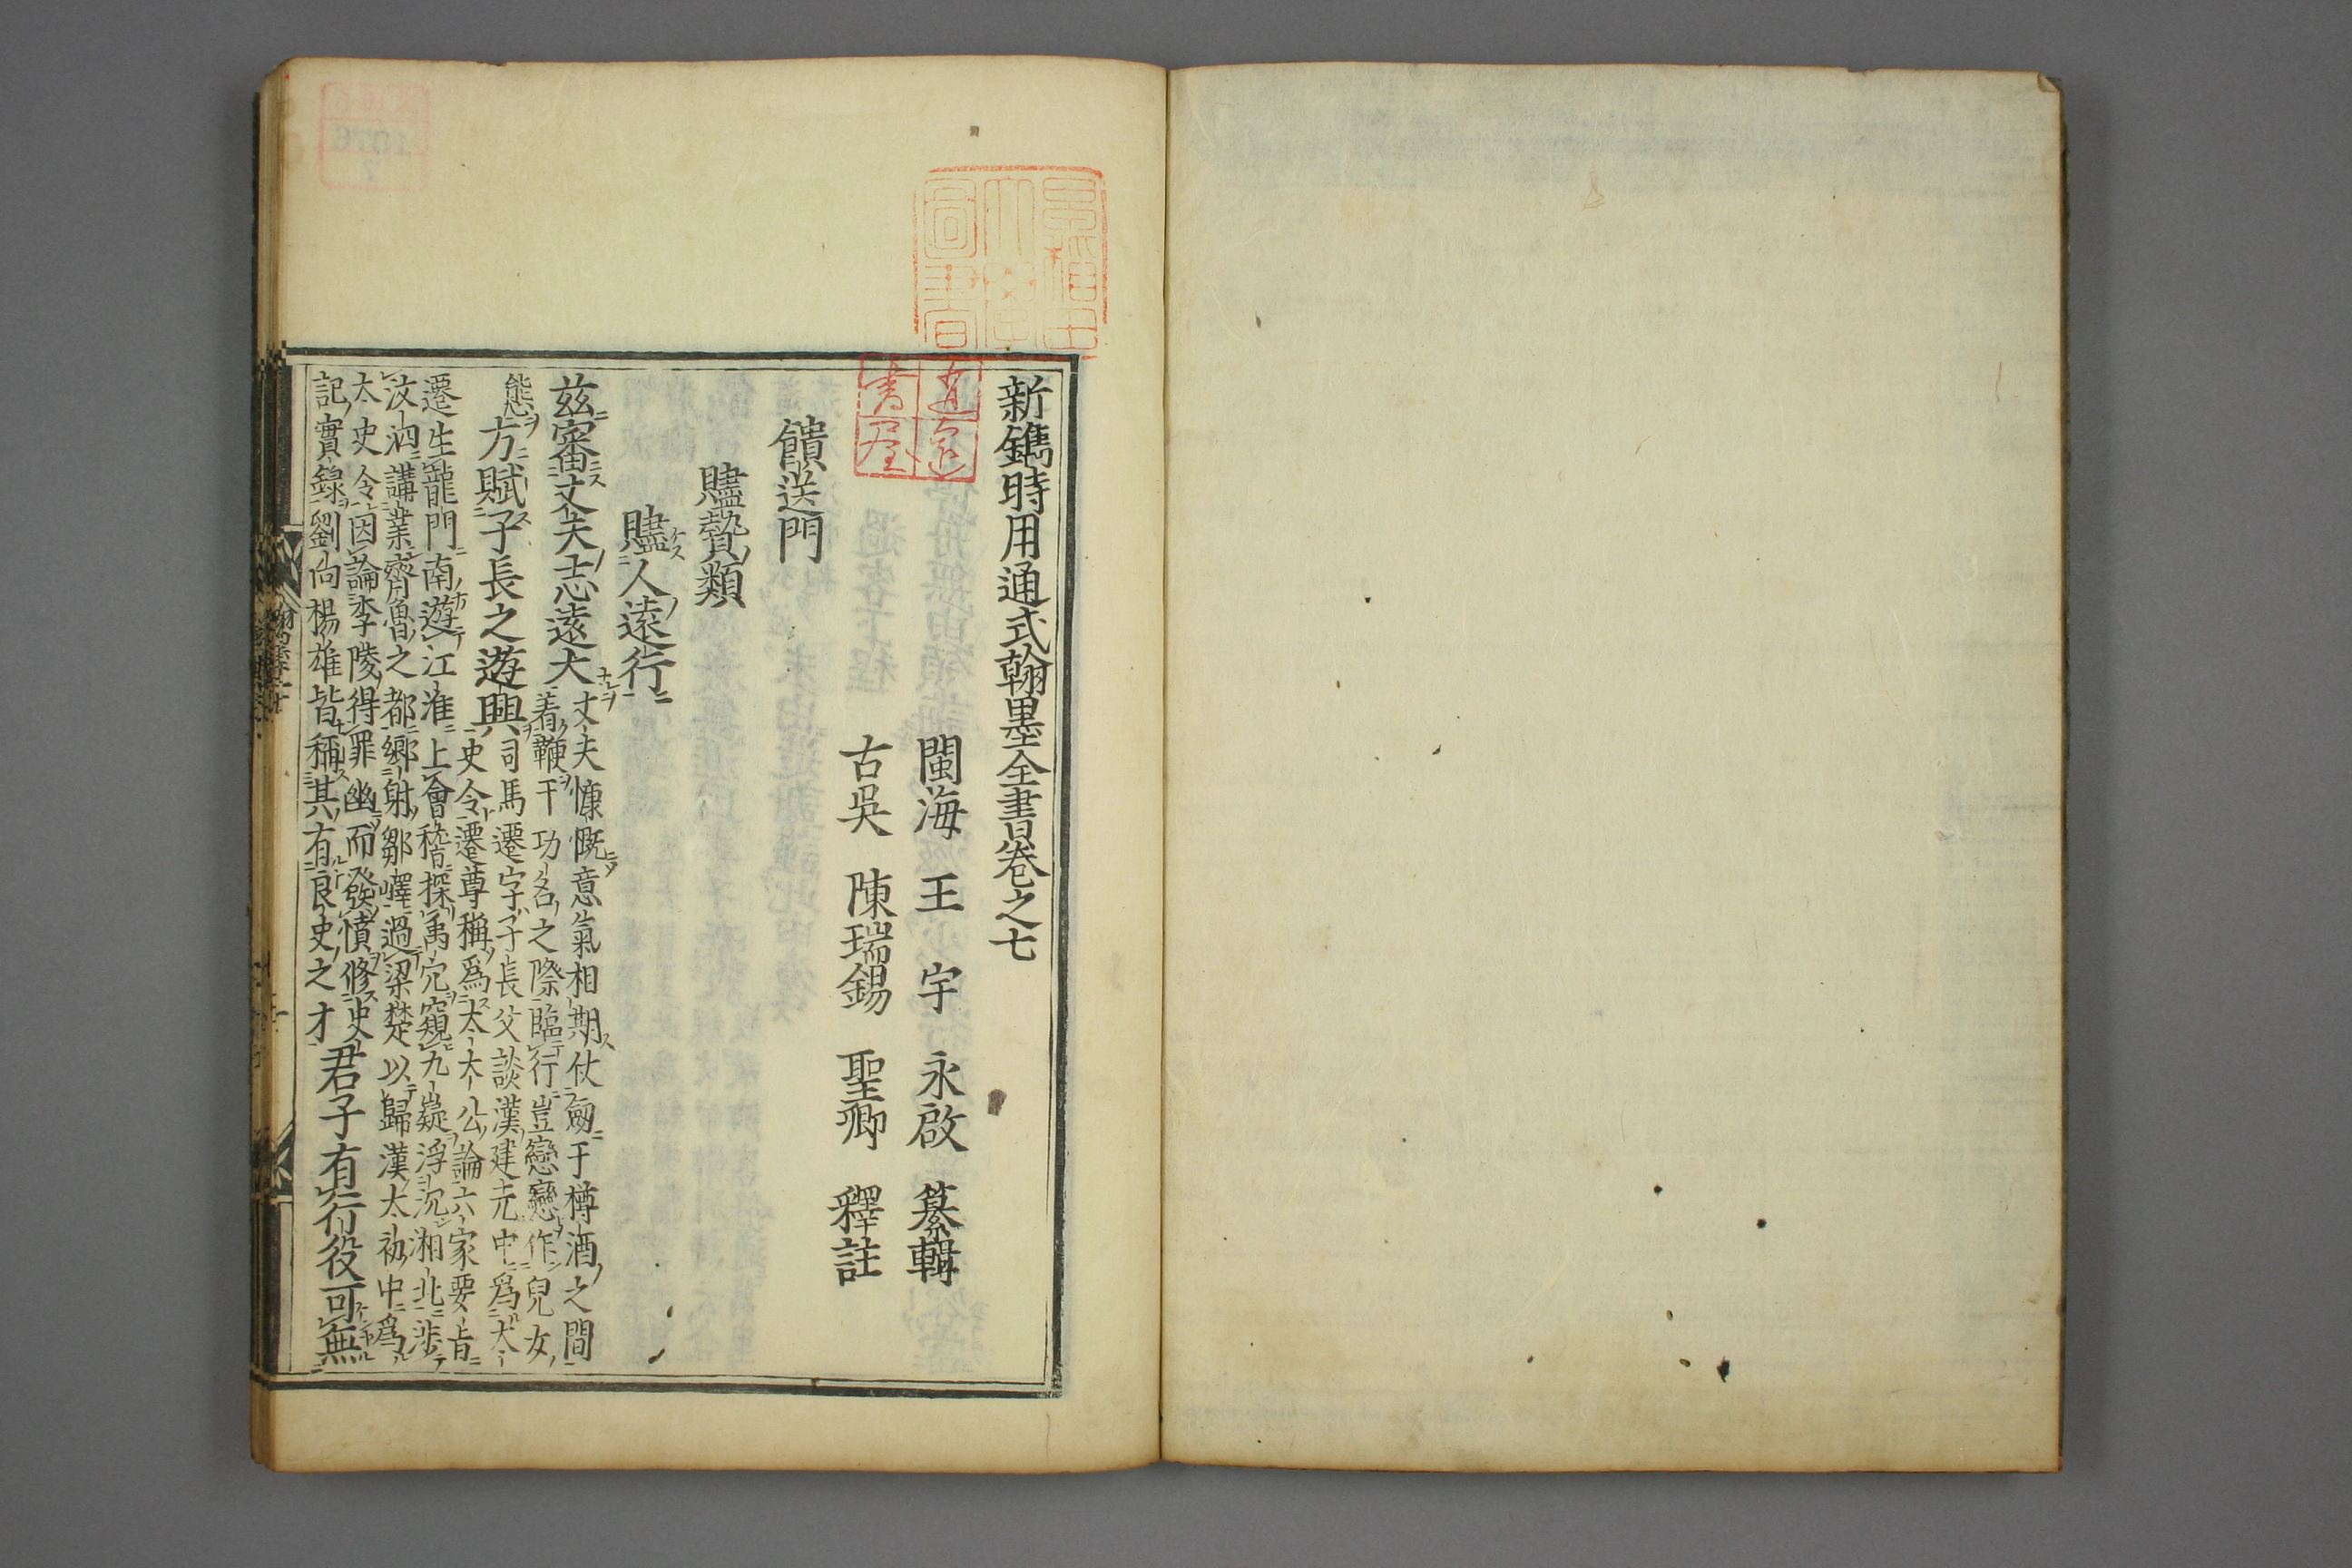 新鐫時用通式翰墨全書卷之七
閩海 王 宇 永啟 纂輯
古吳 陳瑞錫 聖卿 釋註
饋送門
贐贄類
贐人遠行
茲審丈夫志遠大
丈夫慷慨意氣相期仗劒于樽酒之間
着鞭干功名之際臨行豈戀戀作兒女
態
方賦子長之遊興
司馬遷字子長父談漢建元中爲太
史令遷尊稱爲太太公論六家要旨
遷生龍門南遊江淮上會稽探禹穴窺九嶷浮沉湘北涉
汶泗講業齊魯之都鄉射鄒嶧過梁楚以歸漢太初中爲
太史令因論李陵得罪幽而發憤修史
記實錄劉向楊雄皆稱其有良史之才
君子有行役可無
早稲田大學圖書
逍遙書屋